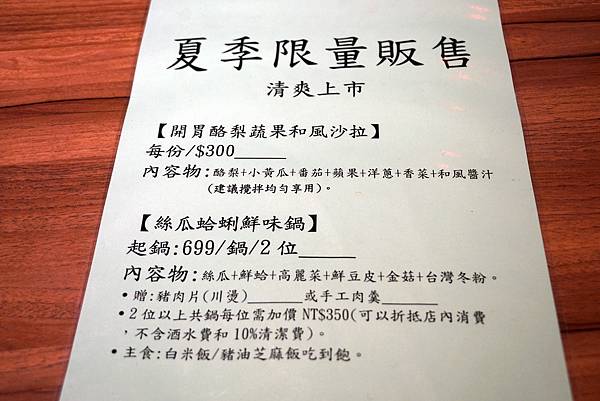 夏季限量販售
清爽上市
【開胃酪梨蔬果和風沙拉】
每份/$300______
內容物:酪梨+小黃瓜+番茄+蘋果+洋蔥+香菜+和風醬汁
(建議攪拌均勻享用)。
【絲瓜蛤蜊鮮味鍋】
起鍋:699/鍋/2位______
內容物:絲瓜+鮮蛤+高麗菜+鮮豆皮+金菇+台灣冬粉。
•贈:豬肉片(川燙)______或手工肉羹______
•2位以上共鍋每位需加價NT$350(可以折抵店內消費
，不含酒水費和10%清潔費)。
•主食:白米飯/豬油芝麻飯吃到飽。